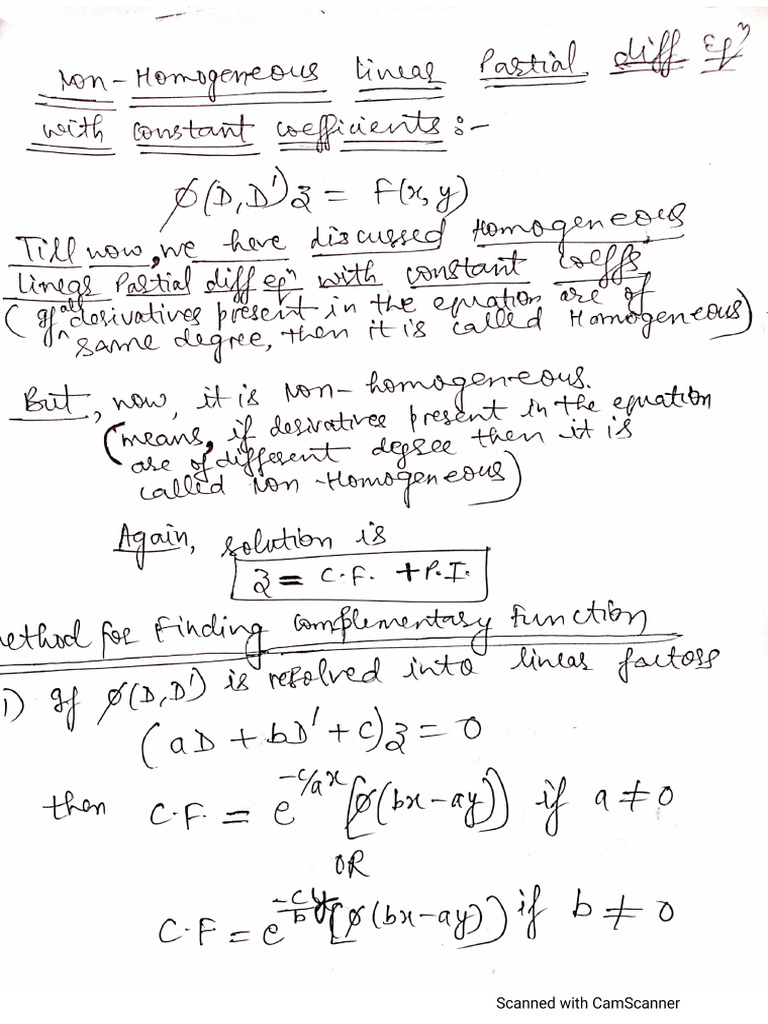 Non-Homogeneous linear Partial diff Eqⁿ
with constant coefficients:-
ϕ(D, D')z = F(x, y)
Till now, we have discussed Homogeneous
linear Partial diff eqⁿ with constant coeffs.
(If all derivatives present in the equation are of
same degree, then it is called Homogeneous)
But, now, it is Non-homogeneous.
(means, if derivatives present in the equation
are of different degree then it is
called Non-Homogeneous)
Again, solution is
z = C.F. + P.I.
method for Finding Complementary Function
1) If ϕ(D, D') is resolved into linear factors
(aD + bD' + c)z = 0
then C.F. = e^{-c/a x} [ϕ(bx-ay)] if a ≠ 0
OR
C.F = e^{-c/b y} [ϕ(bx-ay)] if b ≠ 0
Scanned with CamScanner